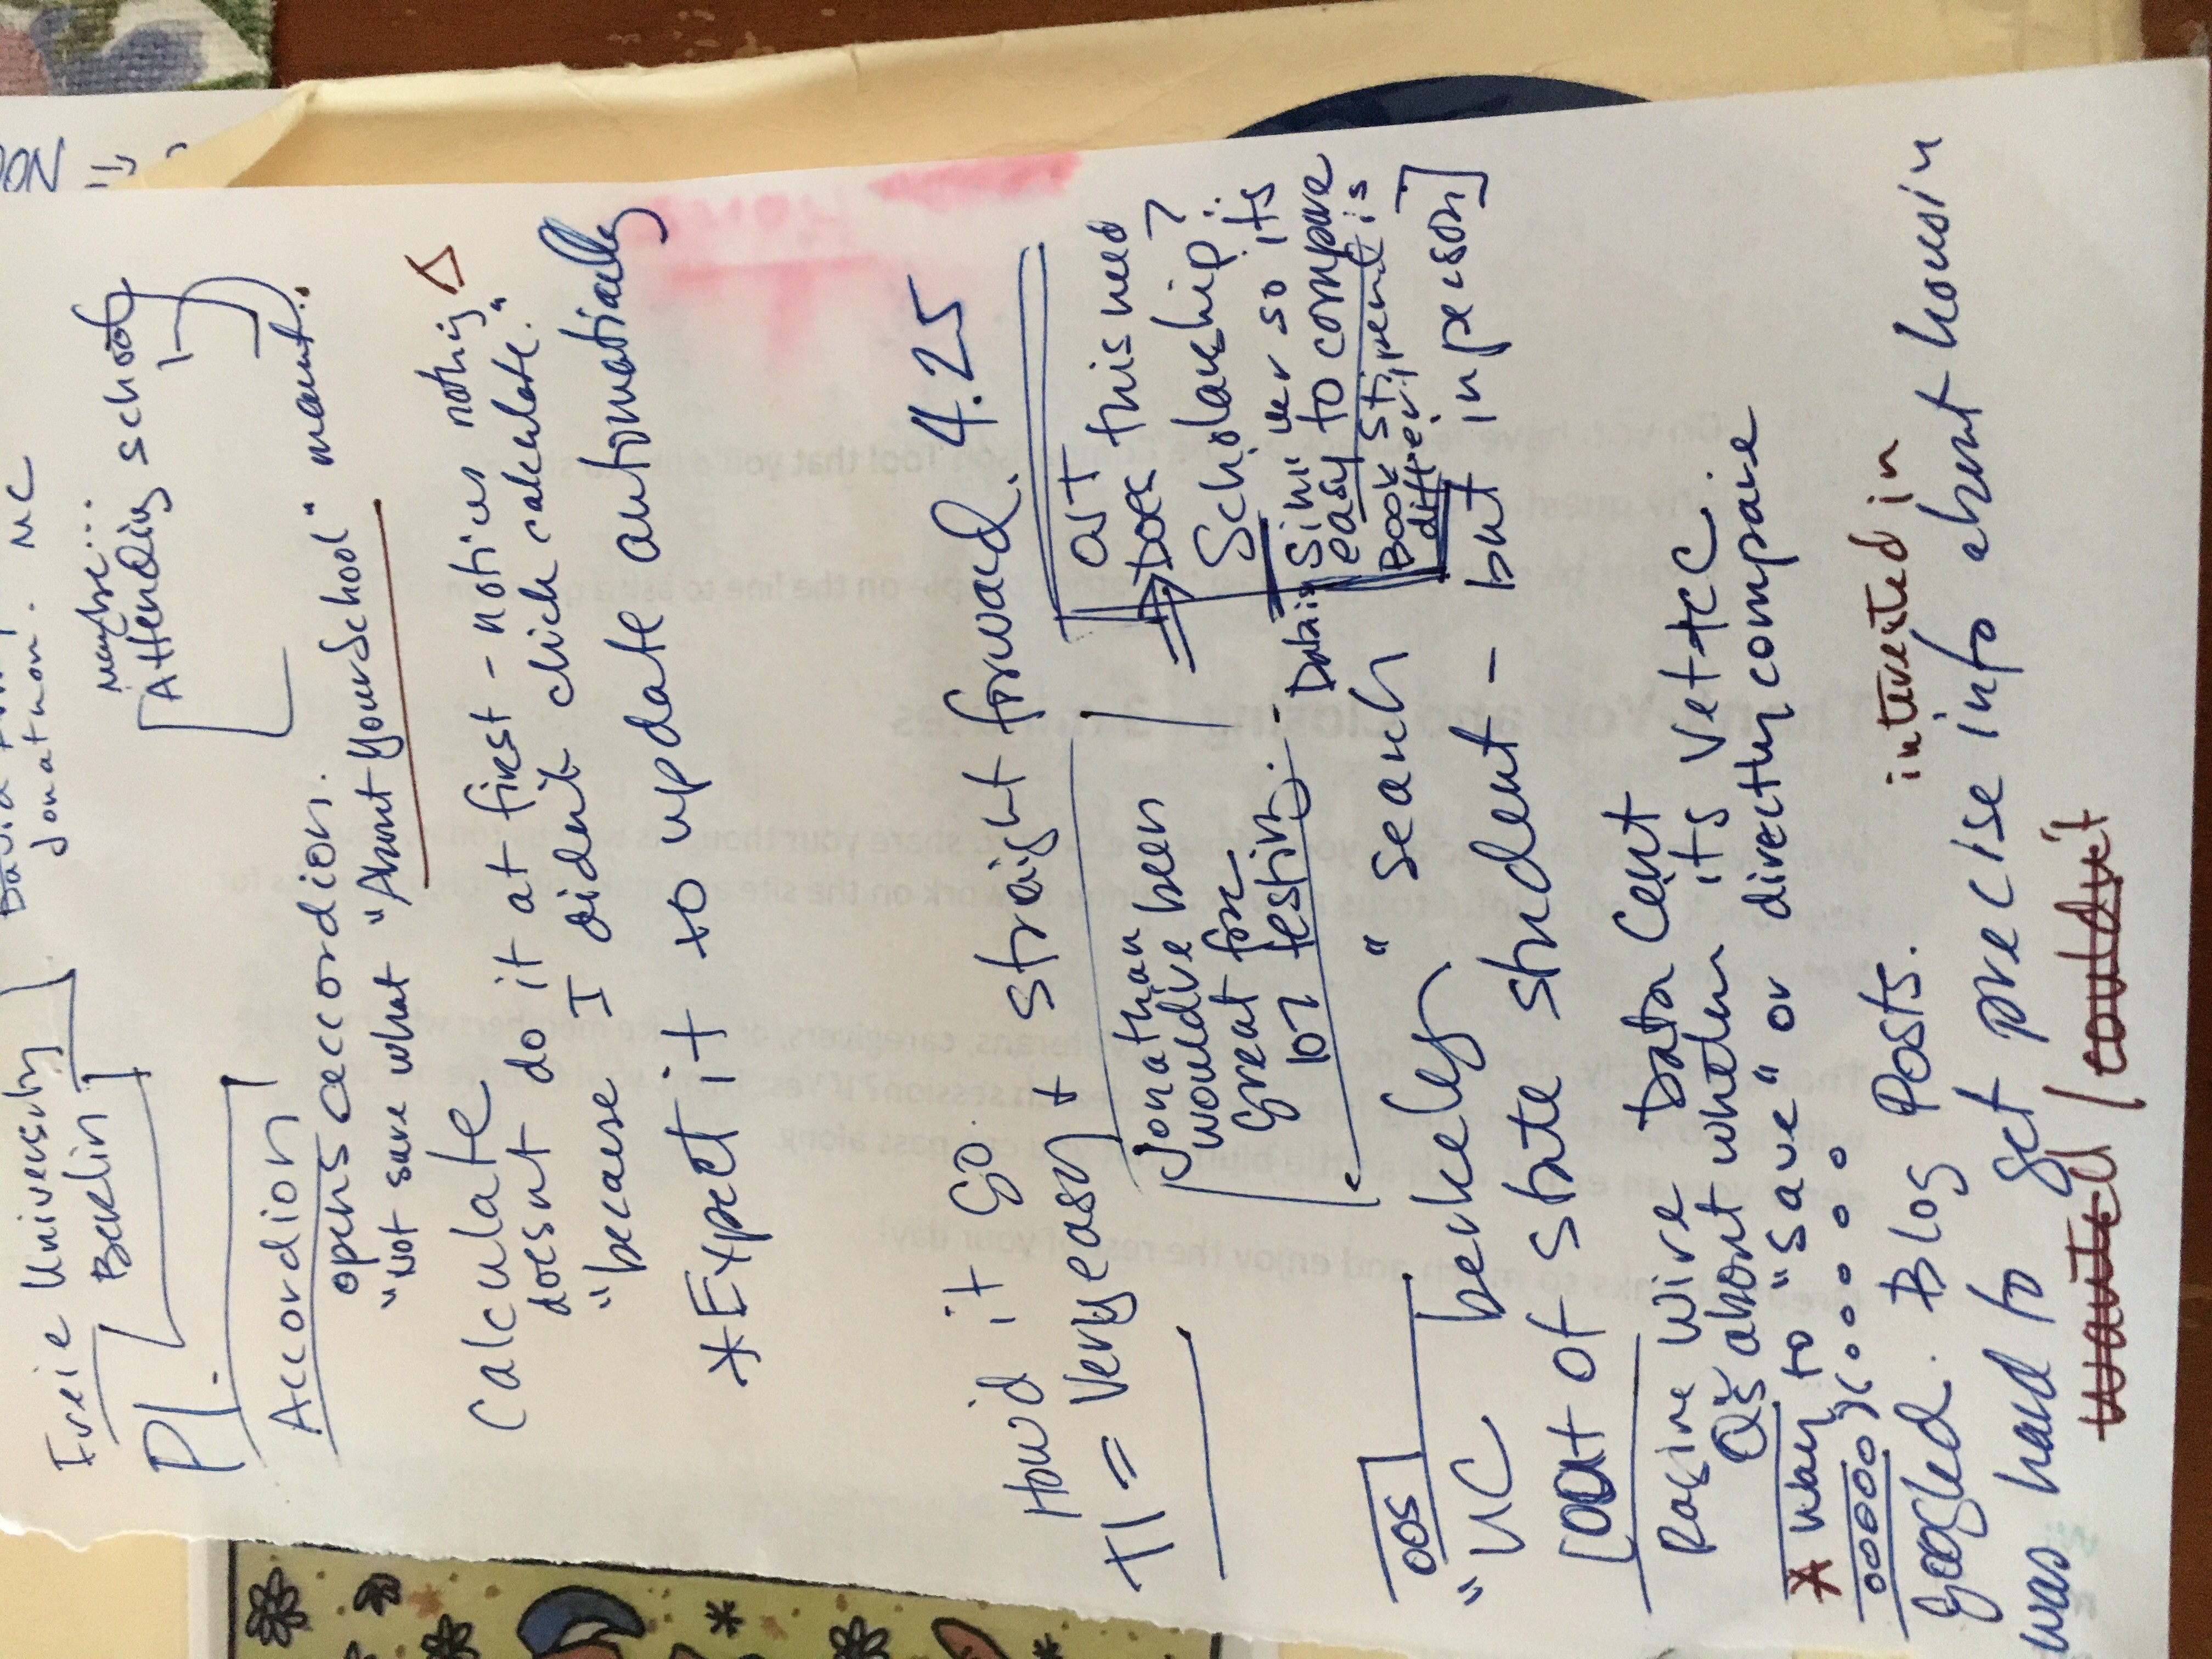 Freie University
Berlin
David
Jonathan. MC
P1.
maybe...
Attending school
Accordion
opens accordion.
"Not sure what "About Your School" meant..
Calculate
doesnt do it at first - notices nothing Δ
"because I didn't click calculate."
*Expect it to update automatically
How'd it go.
T1 = Very easy + straight forward. 4.25
Jonathan
would've been
great for
107 testing.
OJT
Does this need
Scholarship?
Data is similar so its
easy to compare
Book Stipend is
different
OOS
"UC berkeley" search
[out of state student - but in person]
Wire Data Cent
Q's about whether its Vettec.
* Way to "Save" or directly compare
ooooo)(o o o o o
googled. Blog Posts.
interested in
was hard to get precise info about housin
wanted / couldn't